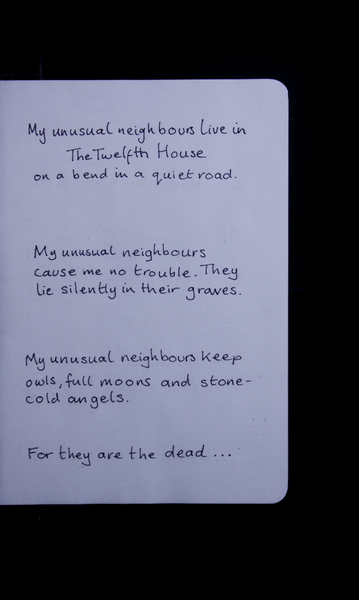 My unusual neighbours live in
The Twelfth House
on a bend in a quiet road.
My unusual neighbours
cause me no trouble. They
lie silently in their graves.
My unusual neighbours keep
owls, full moons and stone-
cold angels.
For they are the dead ...